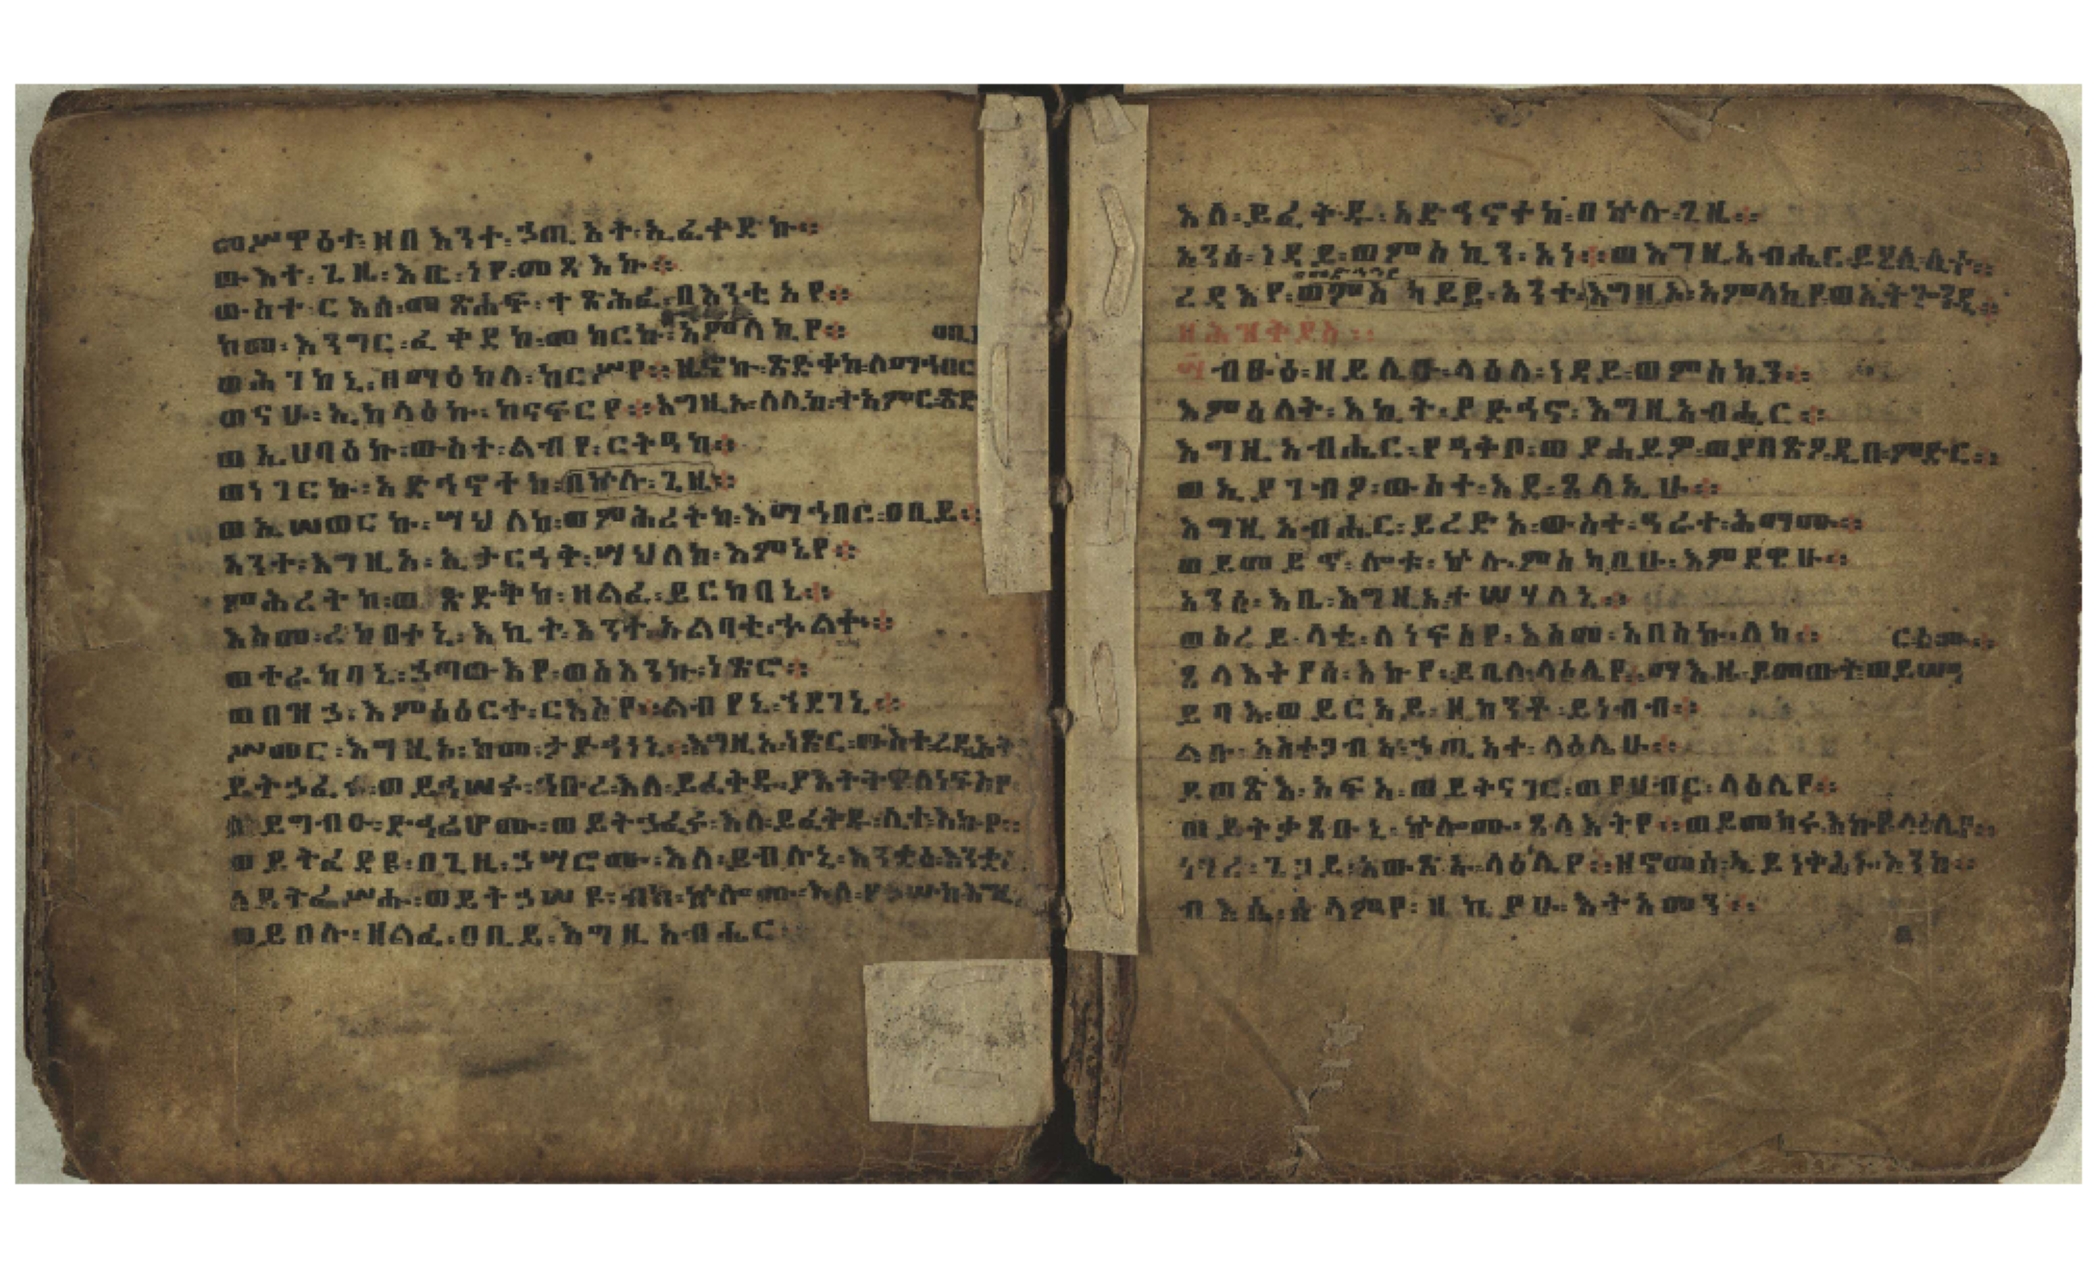 መሥዋዕተ፡ዘበ እንተ፡ኃጢ አት፡ኢፈቀድ ኩ።
ው እተ፡ጊ ዜ፡እቤ፡ነየ፡መጻ እኩ።
ውስተ፡ርእሰ፡መ ጽሐፍ፡ተ ጽሕፈ፡በእንቲ አየ።
ከመ፡እንግር፡ፈ ቀደ ከ፡መ ከርኩ፡አምላ ኪየ።
ወሕ ገ ከ ኒ፡በማዕከለ፡ከርሥየ።ዜኖ ኩ፡ጽድቀከ፡ለማኅበር
ወናሁ፡ኢከላዕኩ፡ከናፍርየ።እግዚኦ፡ለሊከ፡ተአምር፡ጽድ
ወ ኢ ኀባዕ ኩ፡ውስተ፡ልብ የ፡ርትዓከ።
ወነገርኩ፡አድኅኖተከ፡በኵሉ፡ጊዜ።
ወ ኢ ሠወርኩ፡ሣህ ለከ፡ወምሕረትከ፡እማኅበር፡ዐቢይ።
አንተ፡እግዚኦ፡ኢታርኅቅ፡ሣህለከ፡እምኔየ።
ምሕረትከ፡ወ ጽድቅከ፡ዘልፈ፡ይርከባኒ።
እስመ፡ረከበተኒ፡እኪት፡እንተ፡አልባቲ፡ኍልቍ።
ወተራከባኒ፡ኃጣውእየ፡ወስእንኩ፡ነጽሮ።
ወበዝኃ፡እምስዕርተ፡ርእስየ።ልብየኒ፡ኀደገኒ።
ሥመር፡እግዚኦ፡ከመ፡ታድኅነኒ።እግዚኦ፡ነጽር፡ውስተረዲኦት
ይትኃፈሩ፡ወይኅሠሩ፡ኅቡረ፡እለ፡ይፈቅዱ፡ያእትትዋለነፍስየ
ይግብኡ፡ድኅሬሆሙ፡ወይትኃፈሩ፡እለ፡ይፈቅዱ፡ሊተ፡እኩየ።
ወይትፈደዩ፡በጊዜ፡ኃሣሮሙ፡እለ፡ይብሉኒ፡እንቋዕእንቋ
ለይትፌሥሑ፡ወይትኃሠዩ፡ብከ፡ኵሎሙ፡እለ፡የኃሡከእግዚ
ወይበሉ፡ዘልፈ፡ዐቢይ፡እግዚ አብሔር
እለ፡ይፈቅዱ፡አድኅኖተከ፡በኵሉ፡ጊዜ።
አንሰ፡ነዳይ፡ወምስኪን፡አነ።ወእግዚአብሔር፡ይሄሊሊተ።
ረዳእየ፡ወምእ ካይይ፡አንተ፡እግዚኦ፡አምላኪየ፡ወኢትጐንዲ።
ብፁዕ፡ዘይሌቡ፡ላዕለ፡ነዳይ፡ወምስኪን።
እምዕለት፡እኪት፡ያድኅኖ፡እግዚአብሔር።
እግዚ አብሔር፡የዓቅቦ፡ወያሐይዎ፡ወያበጽዖ፡ዲበ፡ምድር።
ወ ኢ ያገብዖ፡ውስተ፡እደ፡ጸላኢሁ።
እግዚ አብሔር፡ይረድኦ፡ውስተ፡ዓራተ፡ሕማሙ።
ወይመይጥ፡ሎቱ፡ኵሎ፡ምስካቢሁ፡እምደዌሁ።
አንሰ፡እቤ፡እግዚኦ፡ተሣሃለኒ።
ወስረይ፡ላቲ፡ለነፍስየ፡እስመ፡አበስኩ፡ለከ።
ጸላእትየሰ፡እኩየ፡ይቤሉ፡ላዕሌየ።ማእዜ፡ይመውት፡ወይሠ
ይባእ፡ወይርአይ፡ዘከንቶ፡ይነብብ።
ልቡ፡አስተጋብአ፡ኃጢአተ፡ላዕሌሁ።
ይወጽእ፡አፍአ፡ወይትናገር፡ወየኀብር፡ላዕሌየ።
ወይትቃጸቡኒ፡ኵሎሙ፡ጸላእትየ።ወይመክሩ፡እኩየ፡ላዕሌየ።
ነገረ፡ጌጋይ፡አውጽኡ፡ላዕሌየ።ዘኖመሰ፡ኢይነቅህኑ፡እንከ።
ብእሴ፡ሰላምየ፡ዘኪያሁ፡እትአመን።